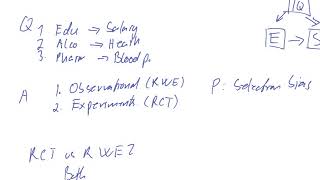 Q 1 Edu → Salary
2 Alco → Health
3. Pharm → Blood p.
A 1. Observational (RWE)
2. Experiments (RCT)
P: Selection bias
RCT vs RWE?
Both
Q
E → S